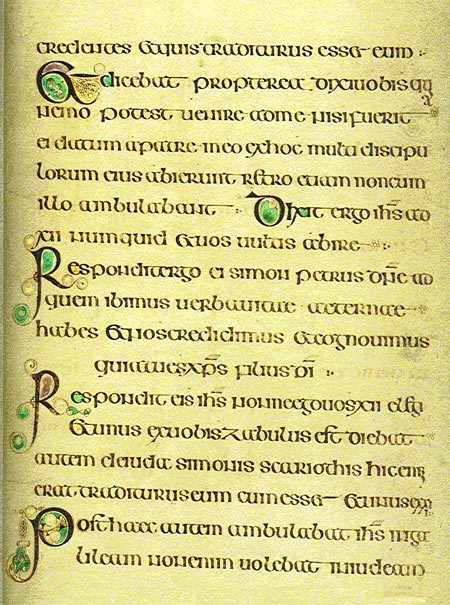 credentes et quis traditurus esset eum :·
Et dicebat propterea dixi uobis qu
a
nemo potest uenire ad me nisi fuerit
ei datum a patre meo ex hoc multi discipu
lorum eius abierunt retro et iam non cum
illo ambulabant :· Dixit ergo ih̅s ad
xii numquid et uos uultis abire
Respondit ergo ei simon petrus dn̅e ad
quem ibimus uerba uitae aeternae
habes et nos credidimus et cognouimus
quia tu es xp̅s filius di̅ :·
Respondit eis ih̅s nonne ego uos xii elegi
et unus ex uobis zabulus est dicebat
autem de iuda simonis scariothis hic enim
erat traditurus eum cum esset et unus
Post haec autem ambulabat ih̅s in ga
lileam non enim uolebat in iudeam